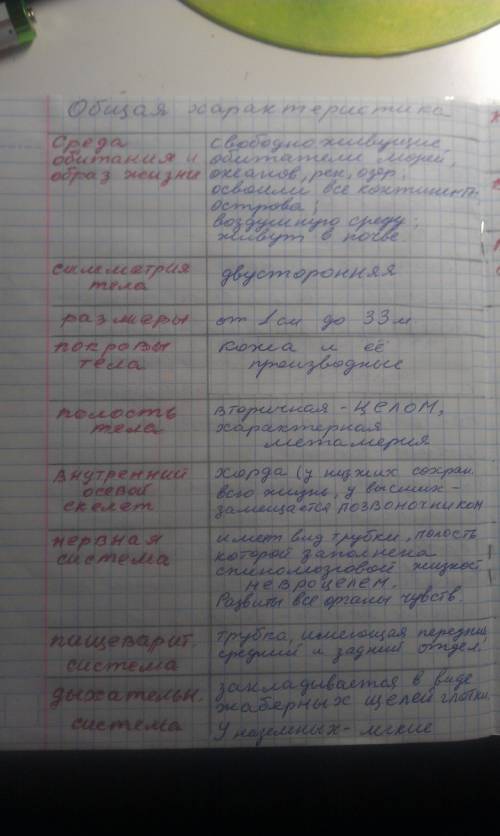 Общая характеристика
Среда обитания и образ жизни
свободно живущие,
обитатели морей,
океанов, рек, озёр,
освоили все континент.
острова;
воздушную среду;
живут в почве
симметрия тела
двусторонняя
размеры
от 1 см до 33 м
покровы тела
кожа и её
производные
полость тела
вторичная - целом,
характерная
метамерия
внутренний осевой скелет
хорда (у низших сохран.
всю жизнь, у высших -
замещается позвоночником
нервная система
имеет вид трубки, полость
которой заполнена
спинномозговой жидкост.
невроцелем.
Развиты все органы чувств.
пищеварит. система
трубка, имеющая передний
средний и задний отдел.
дыхательн. система
закладывается в виде
жаберных щелей глотки
У наземных - легкие